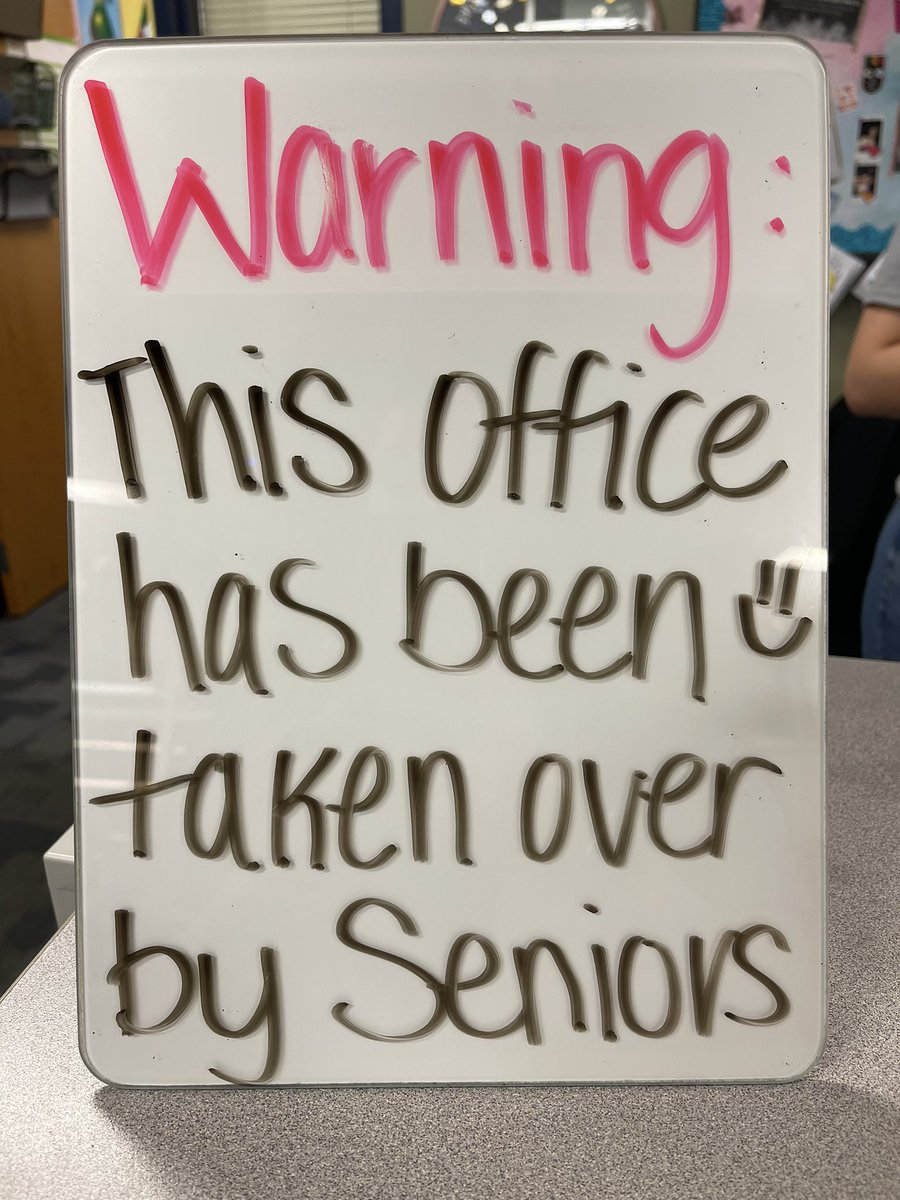 Warning:
This office
has been
taken over
by Seniors